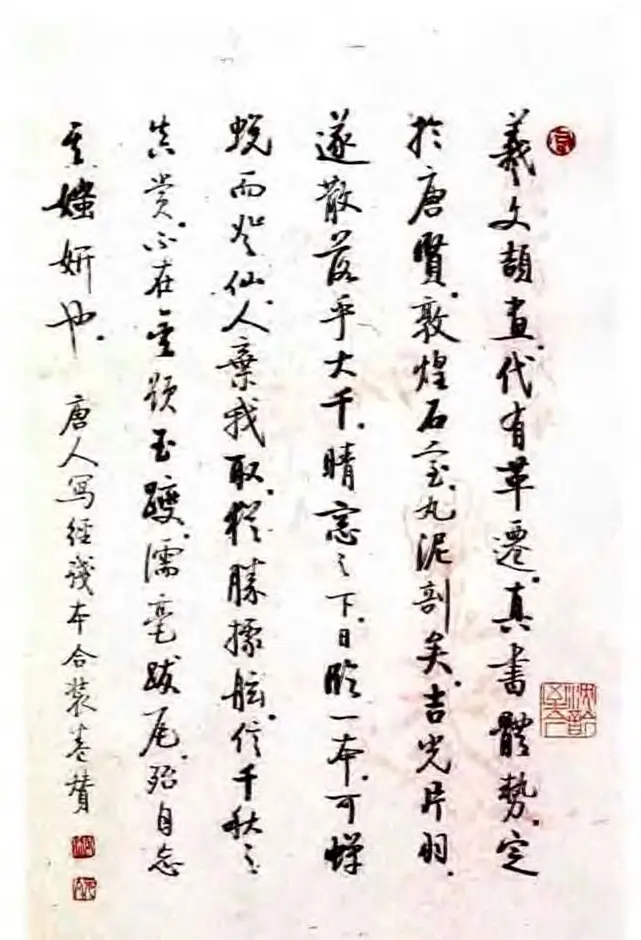 羲文頡畫、代有革遷、真書體勢、定
於唐賢、敦煌石室、丸泥剖矣、吉光片羽、
遂散落乎大千、晴窓之下、日臨一本、可蟬
蛻而登仙、人棄我取、猶勝據舷、信千秋之
真賞、不在金題玉躞、濡毫跋尾、殆自忘
其媸妍也、唐人寫經殘本合裝卷贊